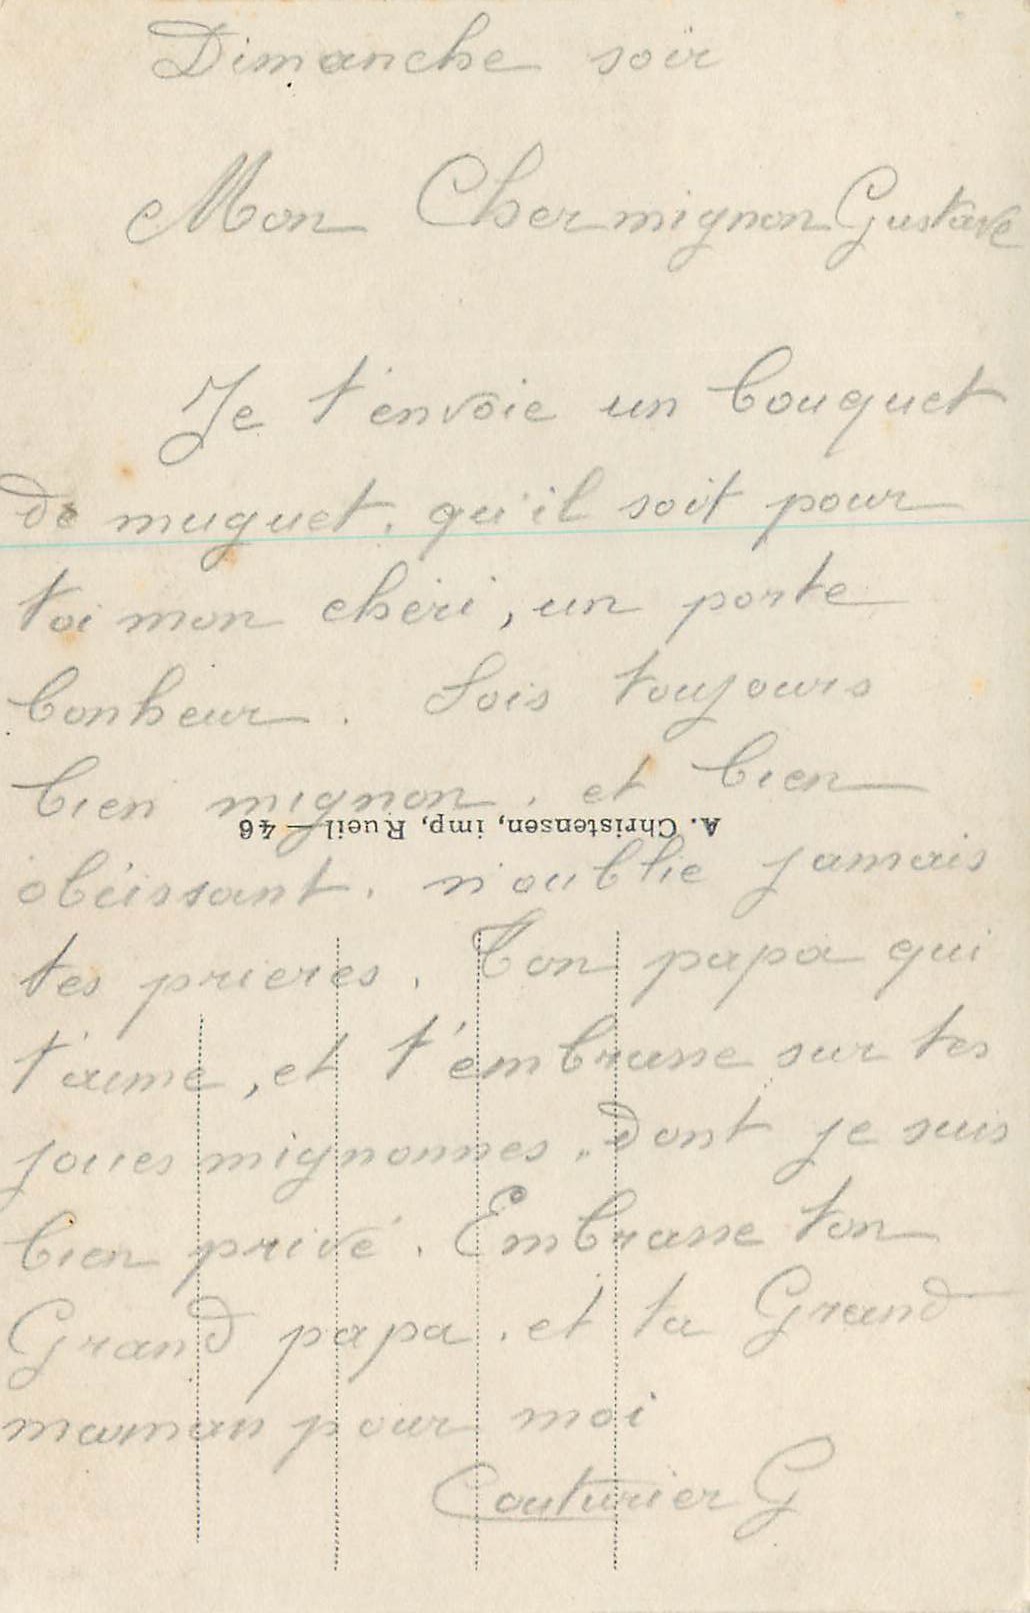 Dimanche soir
Mon Cher mignon Gustave
Je t'envoie un bouquet
de muguet. qu'il soit pour
toi mon chéri, un porte
bonheur. Sois toujours
bien mignon. et bien
A. Christensen, imp, Rueil — 46
obéissant. n'oublie jamais
tes prieres. Ton papa qui
t'aime, et t'embrasse sur tes
joues mignonnes. Dont je suis
bien privé. Embrasse ton
Grand papa. et ta Grand
maman pour moi
Couturier G